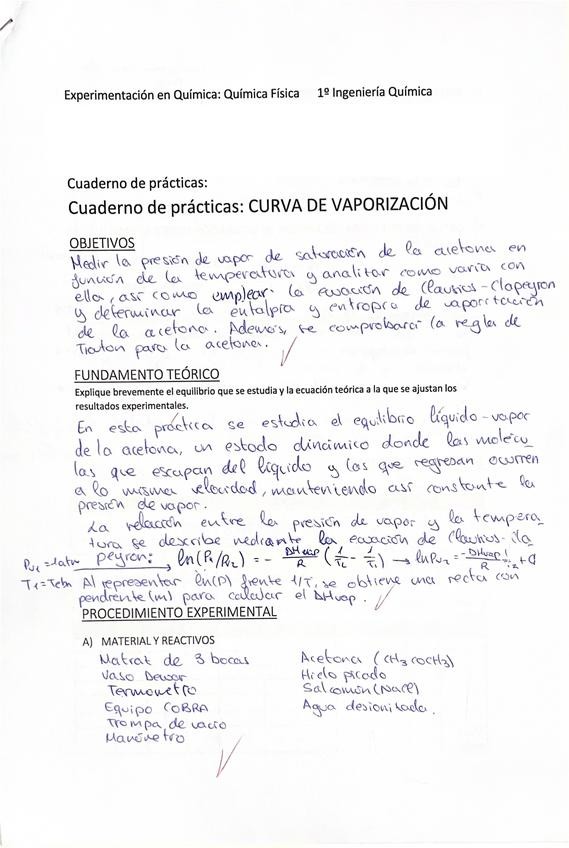 Experimentación en Química: Química Física 1º Ingeniería Química
Cuaderno de prácticas:
Cuaderno de prácticas: CURVA DE VAPORIZACIÓN
OBJETIVOS
Medir la presión de vapor de saturación de la acetona en
función de la temperatura y analizar como varía con
ella, así como emplear la ecuación de Clausius-Clapeyron
y determinar la entalpía y entropía de vaporización
de la acetona. Además, se comprobará la regla de
Trouton para la acetona.
FUNDAMENTO TEÓRICO
Explique brevemente el equilibrio que se estudia y la ecuación teórica a la que se ajustan los
resultados experimentales.
En esta práctica se estudia el equilibrio líquido-vapor
de la acetona, un estado dinámico donde las molécu
las que escapan del líquido y las que regresan ocurren
a la misma velocidad, manteniendo así constante la
presión de vapor.
La relación entre la presión de vapor y la tempera
tura se describe mediante la ecuación de Clausius-Cla
peyron: ln(P₁/P₂) = - ΔHvap/R (1/T₂ - 1/T₁) → ln Pv₂ = -ΔHvap/R · 1/T₂ + C
Pv₁ = 1atm
T₁ = Tebn Al representar ln(P) frente 1/T, se obtiene una recta con
pendiente (m) para calcular el ΔHvap.
PROCEDIMIENTO EXPERIMENTAL
A) MATERIAL Y REACTIVOS
Matraz de 3 bocas Acetona (CH₃COCH₃)
Vaso Dewar Hielo picado
Termómetro Sal común (NaCl)
Equipo COBRA Agua desionizada.
Trompa de vacío
Manómetro